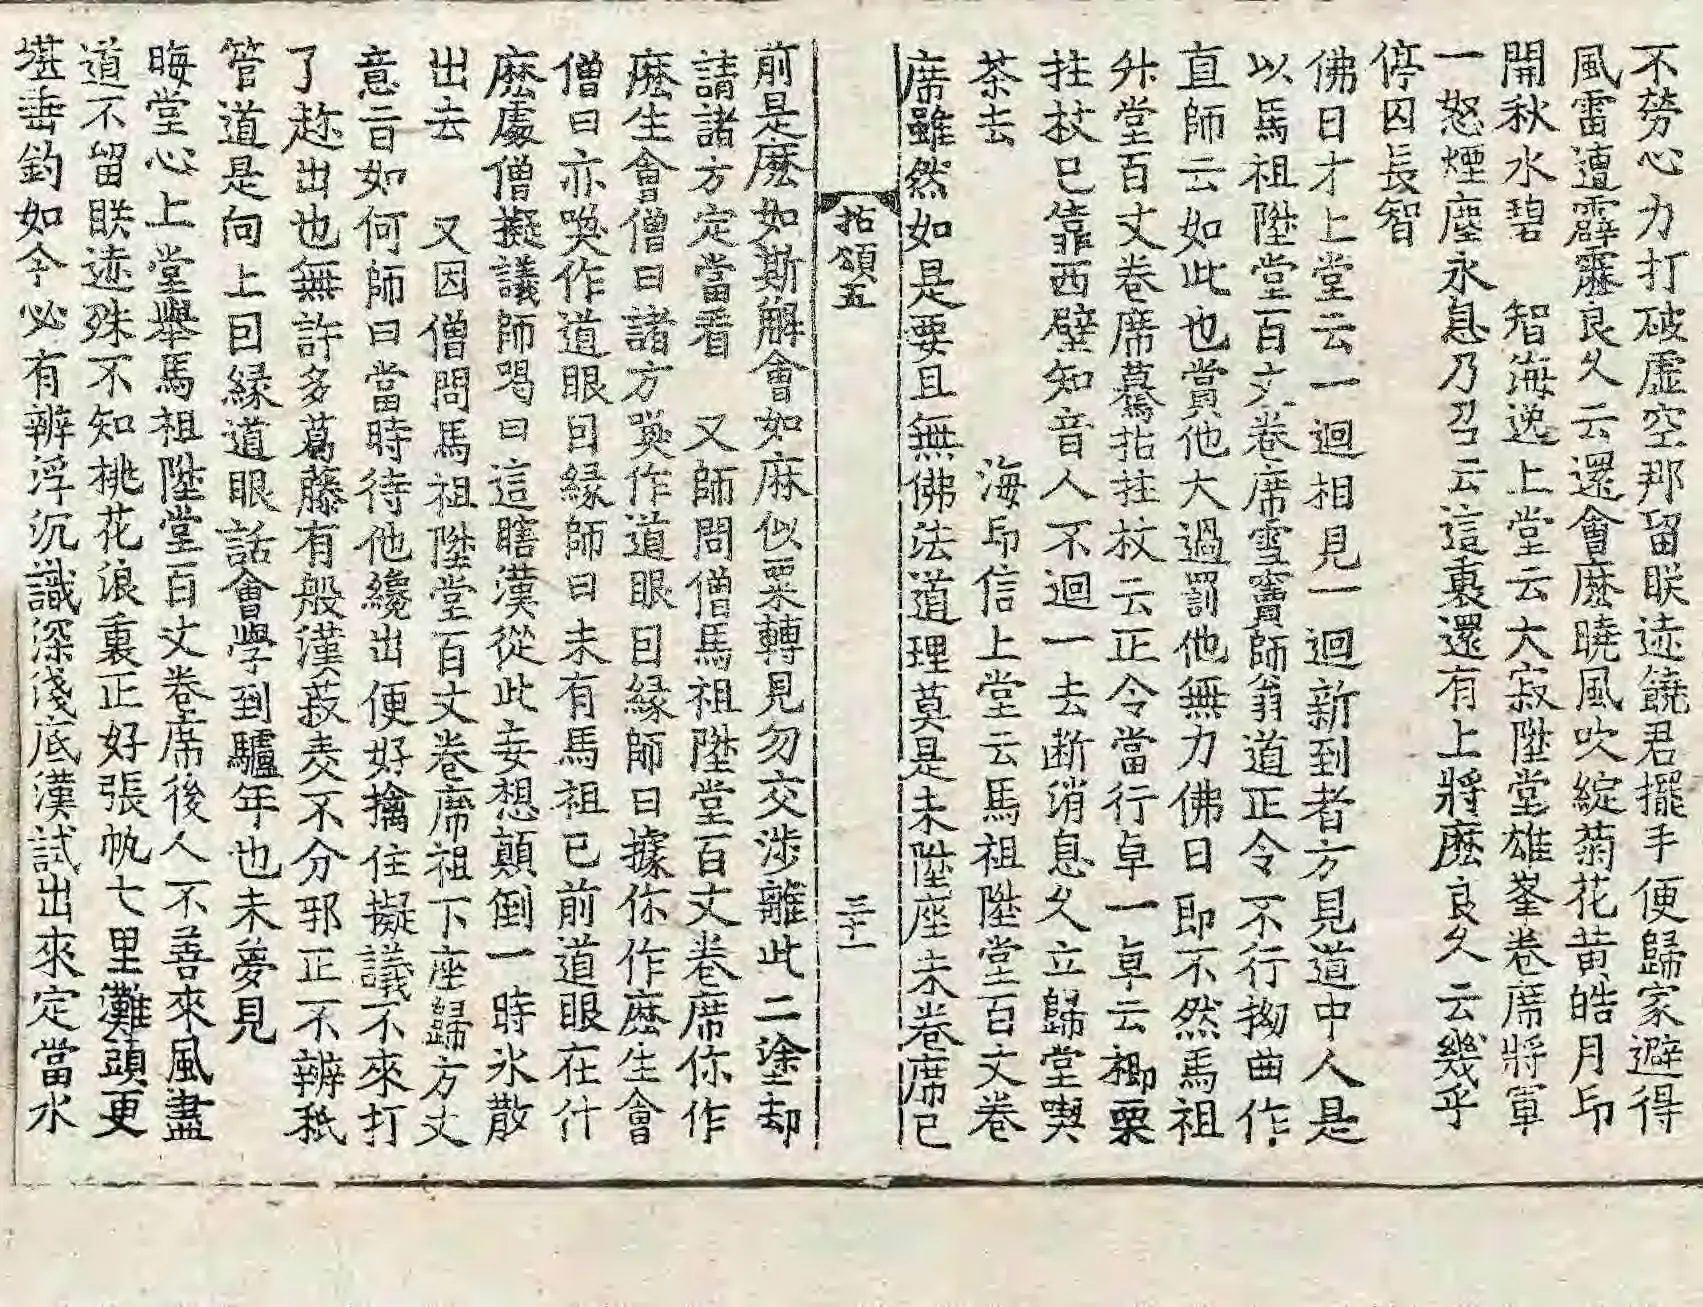 不勞心力打破虛空那留眹迹饒君擺手便歸家避得
風雷遭霹靂良久云還會麽曉風吹綻菊花黃皓月印
開秋水碧　智海逸上堂云大寂陞堂雄峯卷席將軍
一怒煙塵永息乃召云這裏還有上將麽良久云幾乎
停囚長智
佛日才上堂云一迴相見一迴新到者方見道中人是
以馬祖陞堂百丈卷席雪竇師翁道正令不行拗曲作
直師云如此也賞他大過罰他無力佛日即不然馬祖
升堂百丈卷席驀拈拄杖云正令當行卓一卓云楖栗
拄杖已靠西壁知音人不迴一去斷消息久立歸堂喫
茶去　海印信上堂云馬祖陞堂百丈卷
席雖然如是要且無佛法道理莫是未陞座未卷席已
拈頌五
三十一
前是麽如斯解會如麻似粟轉見勿交涉離此二塗却
請諸方定當看　又師問僧馬祖陞堂百丈卷席你作
麽生會僧曰諸方喚作道眼因緣師曰據你作麽生會
僧曰亦喚作道眼因緣師曰未有馬祖已前道眼在什
麽處僧擬議師喝曰這瞎漢從此妄想顛倒一時氷散
出去　又因僧問馬祖陞堂百丈卷席祖下座歸方丈
意旨如何師曰當時待他纔出便好擒住擬議不來打
了趂出也無許多葛藤有般漢菽麥不分邪正不辨秖
管道是向上因緣道眼話會學到驢年也未夢見
晦堂心上堂舉馬祖陞堂百丈卷席後人不善來風盡
道不留眹迹殊不知桃花浪裏正好張帆七里灘頭更
堪垂釣如今必有辨浮沉識深淺底漢試出來定當水